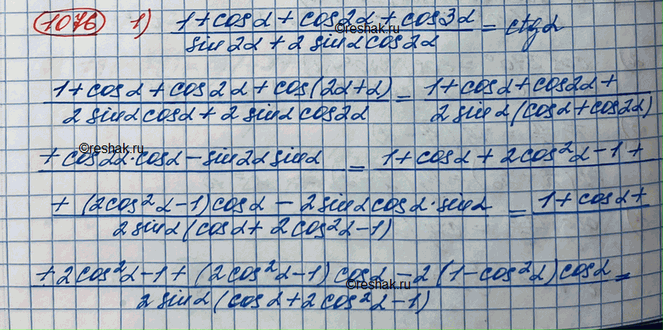 1076 1) (1+cosα+cos2α+cos3α)/(sin2α+2sinαcos2α) = ctgα
©reshak.ru
(1+cosα+cos2α+cos(2α+α))/(2sinαcosα+2sinαcos2α) = (1+cosα+cos2α+)/(2sinα(cosα+cos2α))
©reshak.ru
+cos2α·cosα-sin2αsinα = 1+cosα+2cos²α-1+
+(2cos²α-1)cosα-2sinαcosα·sinα/(2sinα(cosα+2cos²α-1)) = 1+cosα+
+2cos²α-1+(2cos²α-1)cosα-2(1-cos²α)cosα/(2sinα(cosα+2cos²α-1)) =
©reshak.ru